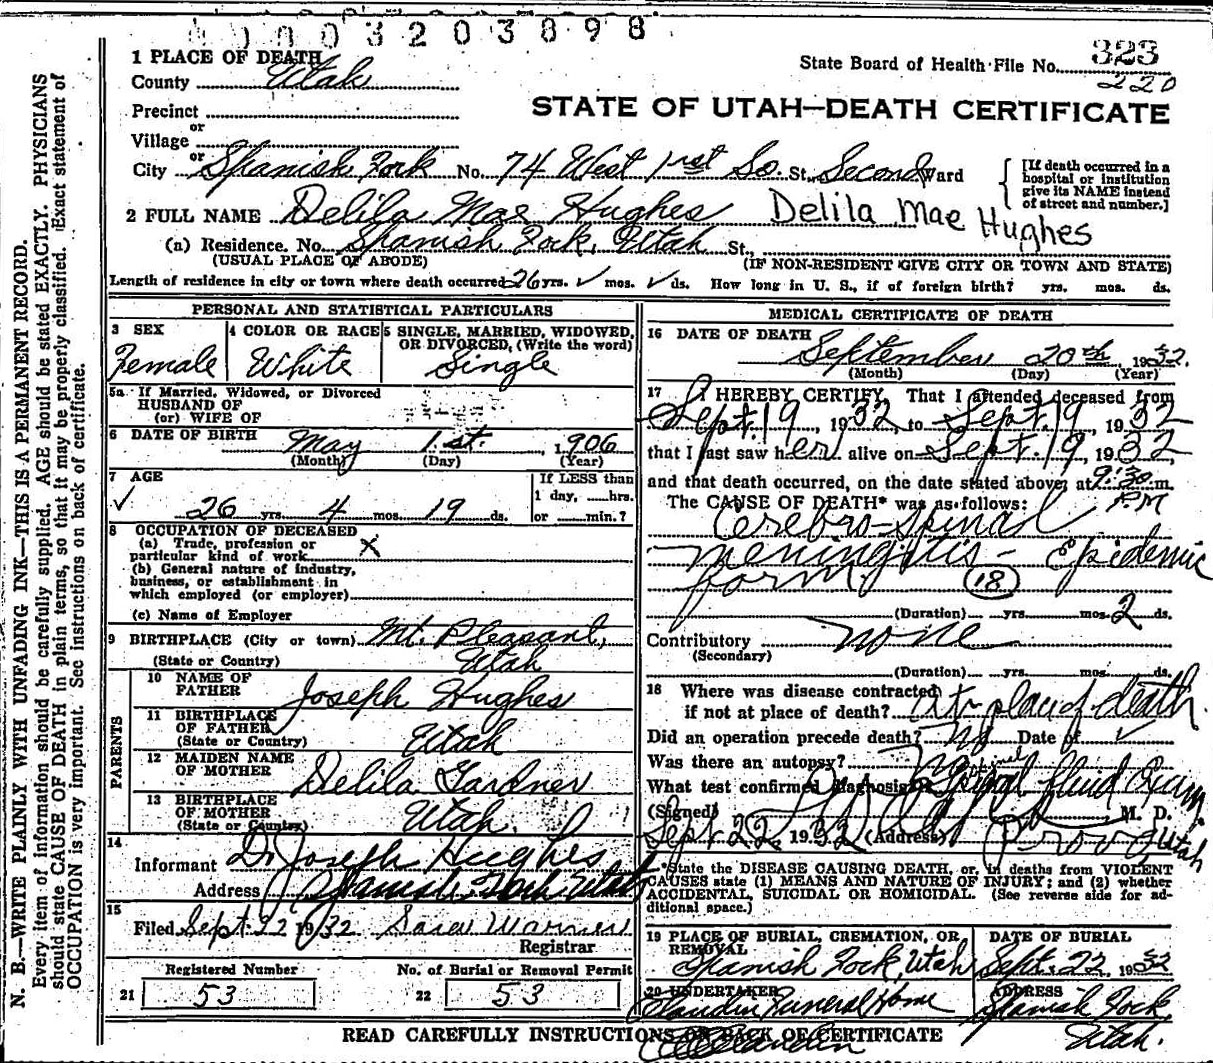 0003203898
1 PLACE OF DEATH
County Utah
State Board of Health File No. 323
220
Precinct
STATE OF UTAH—DEATH CERTIFICATE
or
Village
or
City Spanish Fork No. 74 West 1st So. St. Second Ward
[If death occurred in a hospital or institution give its NAME instead of street and number.]
2 FULL NAME Delila Mae Hughes Delila Mae Hughes
(a) Residence. No. Spanish Fork, Utah St.,
(USUAL PLACE OF ABODE) (IF NON-RESIDENT GIVE CITY OR TOWN AND STATE)
Length of residence in city or town where death occurred 26 yrs. ✓ mos. ✓ ds. How long in U. S., if of foreign birth? yrs. mos. ds.
PERSONAL AND STATISTICAL PARTICULARS
3 SEX
Female
4 COLOR OR RACE
White
5 SINGLE, MARRIED, WIDOWED,
OR DIVORCED, (Write the word)
Single
5a If Married, Widowed, or Divorced
HUSBAND OF
(or) WIFE OF
6 DATE OF BIRTH May 1st. , 1906
(Month) (Day) (Year)
7 AGE
✓ 26 yrs. 4 mos. 19 ds.
If LESS than
1 day, ......hrs.
or ......min.?
8 OCCUPATION OF DECEASED
(a) Trade, profession or
particular kind of work X
(b) General nature of industry,
business, or establishment in
which employed (or employer)
(c) Name of Employer
9 BIRTHPLACE (City or town) Mt. Pleasant,
(State or Country) Utah
PARENTS
10 NAME OF
FATHER Joseph Hughes
11 BIRTHPLACE
OF FATHER
(State or Country) Utah
12 MAIDEN NAME
OF MOTHER Delila Gardner
13 BIRTHPLACE
OF MOTHER
(State or Country) Utah.
14
Informant Dr. Joseph Hughes
Address Spanish Fork Utah
15
Filed Sept. 22 1932 Sara Warner
Registrar
Registered Number
21 53
No. of Burial or Removal Permit
22 53
MEDICAL CERTIFICATE OF DEATH
16 DATE OF DEATH
September 20th 1932.
(Month) (Day) (Year)
17 I HEREBY CERTIFY, That I attended deceased from
Sept. 19, 1932, to Sept. 19, 1932
that I last saw her alive on Sept. 19, 1932
and that death occurred, on the date stated above, at 9:30 m.
P.M
The CAUSE OF DEATH* was as follows:
Cerebro-Spinal
meningitis - Epidemic
form. 18
(Duration) yrs. mos. 2 ds.
Contributory none
(Secondary)
(Duration) yrs. mos. ds.
18 Where was disease contracted
if not at place of death? At place of death.
Did an operation precede death? no Date of ✓
Was there an autopsy? no
What test confirmed diagnosis? Spinal fluid Exam.
(Signed) M. D.
Sept 22, 1932 (Address) Provo Utah
*State the DISEASE CAUSING DEATH, or, in deaths from VIOLENT
CAUSES state (1) MEANS AND NATURE OF INJURY; and (2) whether
ACCIDENTAL, SUICIDAL OR HOMICIDAL. (See reverse side for ad-
ditional space.)
19 PLACE OF BURIAL, CREMATION, OR
REMOVAL
Spanish Fork, Utah
DATE OF BURIAL
Sept. 22 1932
20 UNDERTAKER
Claudin Funeral Home
ADDRESS
Spanish Fork,
Utah.
READ CAREFULLY INSTRUCTIONS ON BACK OF CERTIFICATE
N. B.—WRITE PLAINLY WITH UNFADING INK—THIS IS A PERMANENT RECORD.
Every item of information should be carefully supplied. AGE should be stated EXACTLY. PHYSICIANS
should state CAUSE OF DEATH in plain terms, so that it may be properly classified. Exact statement of
OCCUPATION is very important. See instructions on back of certificate.